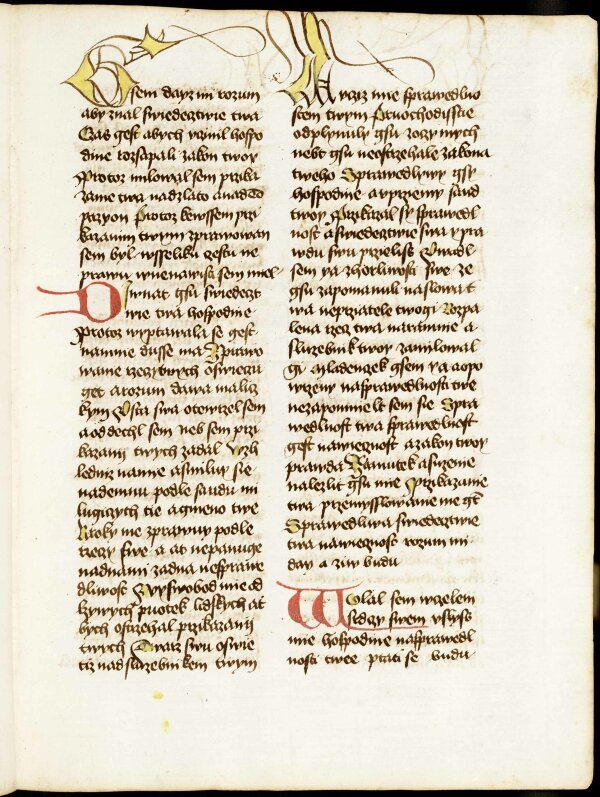 Gsem dayz mi rozum
aby znal swiedeztwie twa
Czas gest abych vczinil hospo
dine rozsipali zakon twoy
Protoz milowal sem przika
zanie twa nad zlato a nad
Protoz kewssem przi
kazanim twym zprawowan
sem byl wsseliku czestu ne
prawu w nenawisti sem miel
Diwnat gsu swiedecz
twie twa hospodine
Protoz wyptawala se gest
na nie dusse ma Zprawo
wanie rzeczy twych oswieczu
get a rozum dawa malicz
kym Vsta swa otewrzel sem
a oddechl sem neb sem przi
kazani twych zadal Wzh
ledniz na mie a smiluy sie
nademnu podle saudu mi
lugiczych tie a gmeno twe
Kroky me zprawuy podle
rzeczy twe a at nepanuge
nad nami zadna nesprawe
dlnost Wyswobod mie od
krzywych puotek lidskych at
bych ostrzehal przikazanij
twych Twarz swu oswie
tiz nad sluzebnikem twym
A vcziz mie sprawedlno
stem twym Pruochodisstie
od plynuly gsu oczy mych
nebt gsu neostrzehale zakona
tweho Sprawedlnwy gsy
hospodine a vprziemy saud
twoy Przikazal sy sprawedl
nost a swiedeztwie swa y pra
wdu swu przielis Vwadl
sem ya zhorliwosti swe ze
gsu zapomanuli na slowa t
wa neprzatele twogi Rozpa
lena rzecz twa naramnie a
sluzebnik twoy zamilowal
gi Mladenczek gsem ya a opo
wrzeny na sprawedlnosti twe
nezapomnielt sem sie Spra
wedlnost twa sprawedlnost
gest na wiecznost a zakon twoy
prawda Zamutek a suzenie
nalezlit gsu mie Przikazanie
twa przemysslowanie me gt
Sprawedliwa swiedeztwie
twa na wiecznost rozum mi
day a ziw budu
Wolal sem w czelem
srdczy swem vslyss
mie hospodine na sprawedl
nosti twee ptati se budu